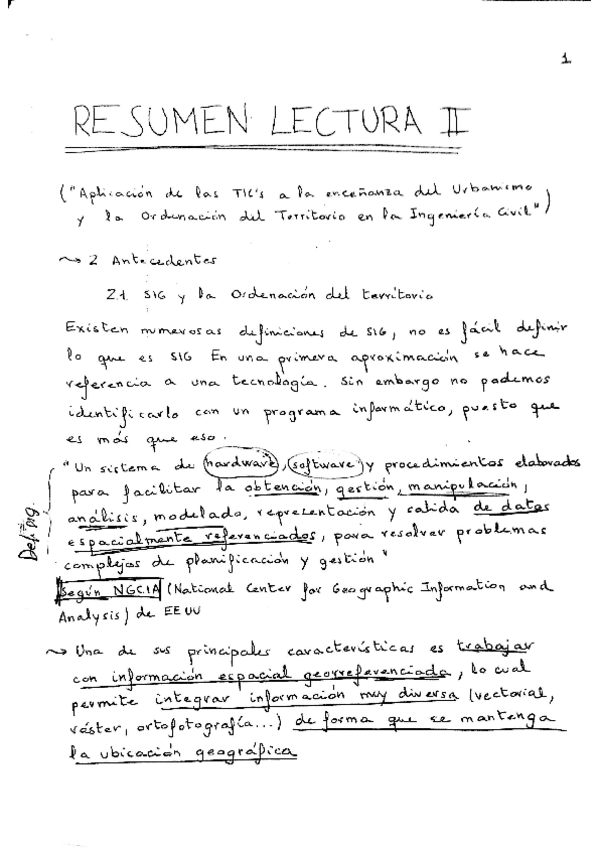 1
RESUMEN LECTURA II
("Aplicación de las TIC's a la enceñanza del Urbanismo
y la Ordenación del Territorio en la Ingeniería Civil")
~> 2 Antecedentes
2.1. SIG y la Ordenación del territorio
Existen numerosas definiciones de SIG, no es fácil definir
lo que es SIG En una primera aproximación se hace
referencia a una tecnología. Sin embargo no podemos
identificarlo con un programa informático, puesto que
es más que eso.
"Un sistema de hardware, software y procedimientos elaborados
para facilitar la obtención, gestión, manipulación,
análisis, modelado, representación y salida de datos
espacialmente referenciados, para resolver problemas
complejos de planificación y gestión"
Según NGCIA (National Center for Geographic Information and
Analysis) de EEUU
~> Una de sus principales características es trabajar
con información espacial georreferenciada, lo cual
permite integrar información muy diversa (vectorial,
ráster, ortofotografía...) de forma que se mantenga
la ubicación geográfica